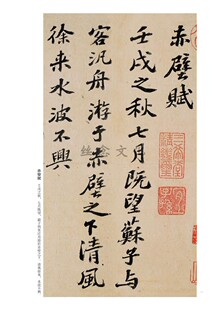 赤壁賦
壬戌之秋七月既望蘇子與
客汎舟游于赤壁之下清風
徐来水波不興